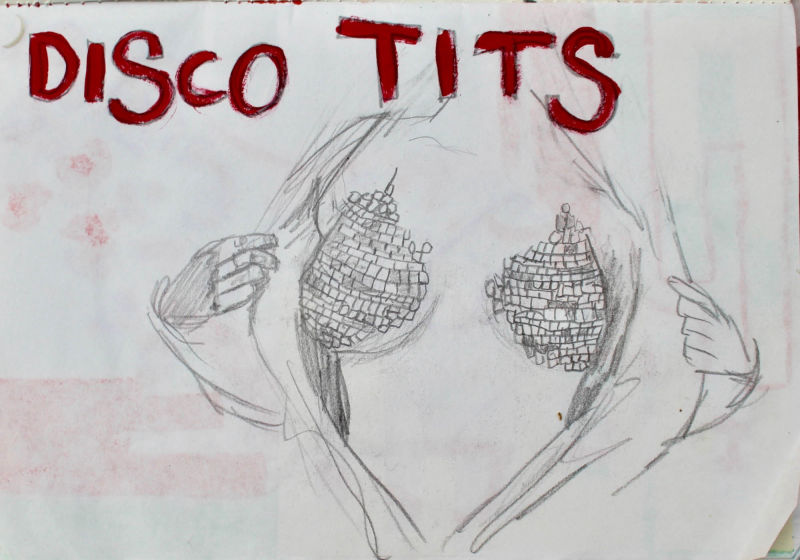 DISCO TITS